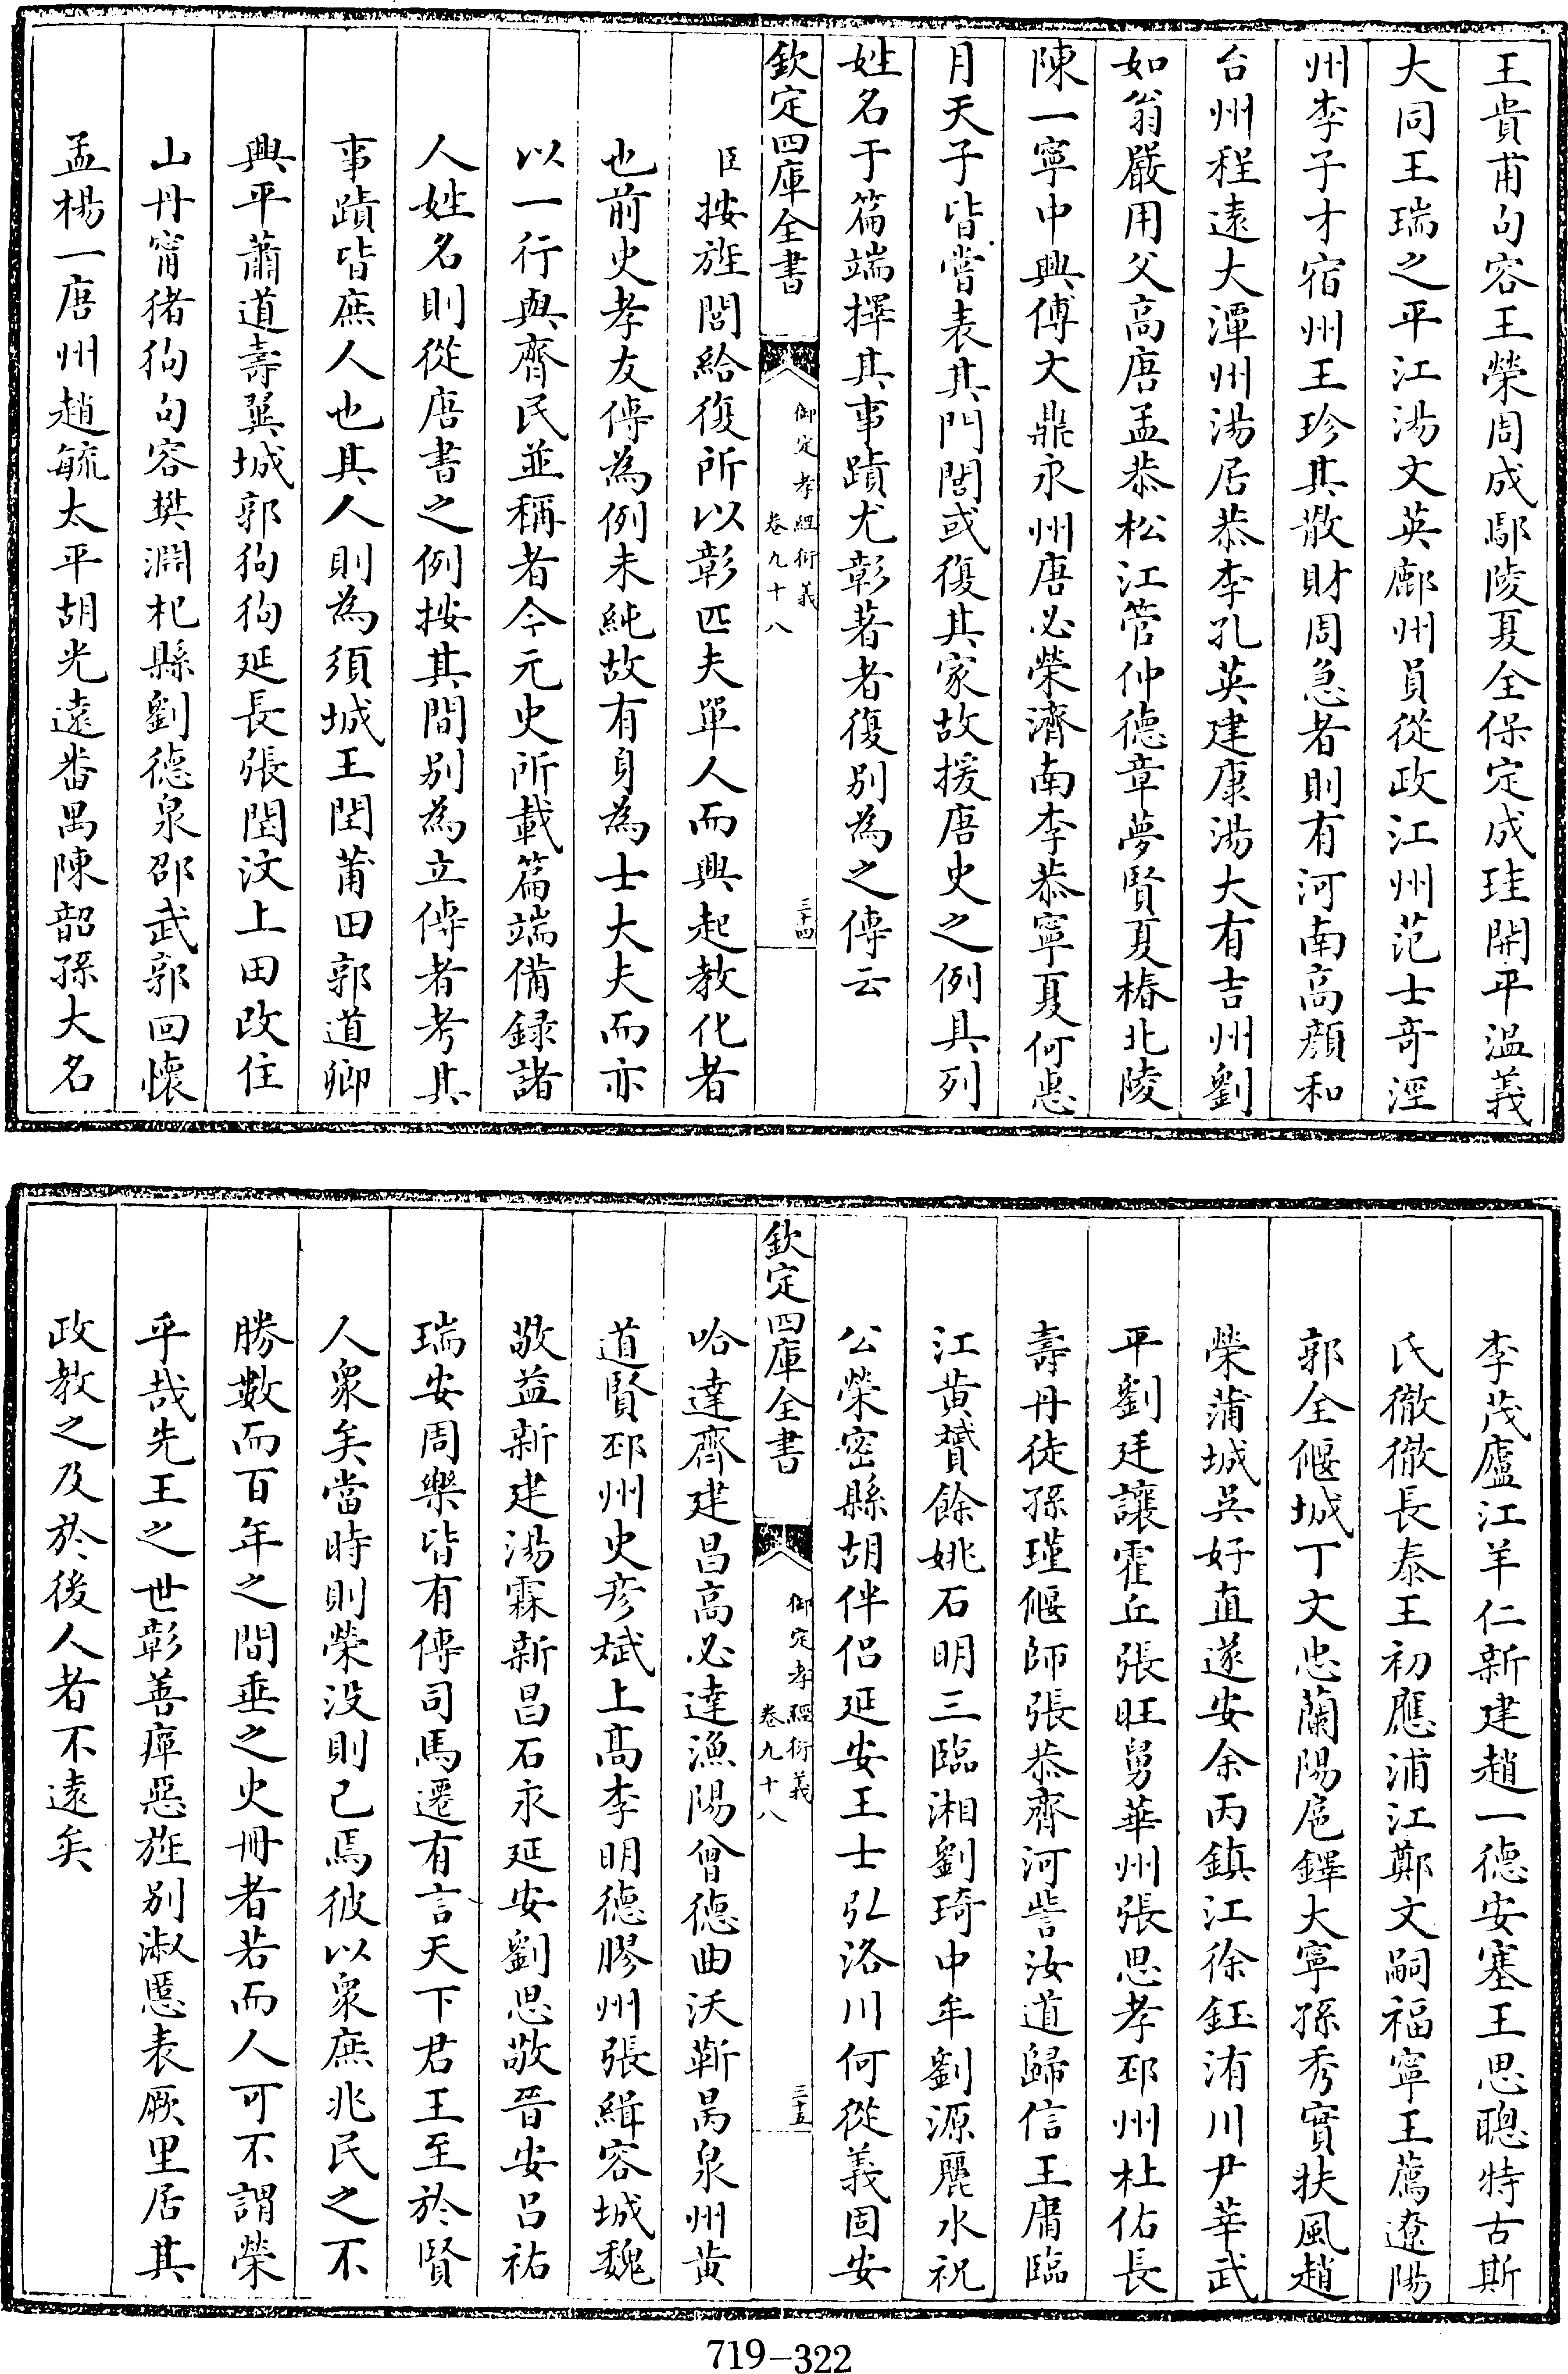 王貴甫句容王榮周成鄢陵夏全保定成珪開平溫義
大同王瑞之平江湯文英鄜州員從政江州范士奇涇
州李子才宿州王珍其散財周急者則有河南高顔和
台州程遠大潭州湯居恭李孔英建康湯大有吉州劉
如翁嚴用父高唐孟恭松江管仲德章夢賢夏椿北陵
陳一寧中興傅文鼎永州唐必榮濟南李恭寧夏何惠
月天子皆嘗表其門閭或復其家故援唐史之例具列
姓名于篇端擇其事蹟尤彰著者復别為之傳云
欽定四庫全書
御定孝經衍義
卷九十八
三十四
臣按旌閭給復所以彰匹夫單人而興起教化者
也前史孝友傳為例未純故有身為士大夫而亦
以一行與齊民並稱者今元史所載篇端備録諸
人姓名則從唐書之例按其間别為立傳者考其
事蹟皆庶人也其人則為須城王閏莆田郭道卿
興平蕭道壽㢲城郭狗狗延長張閏汶上田改住
山丹甯猪狗句容樊淵杞縣劉德泉邵武郭回懷
孟楊一唐州趙毓太平胡光遠番禺陳韶孫大名
李茂廬江羊仁新建趙一德安塞王思聰特古斯
氏徹徹長泰王初應浦江鄭文嗣福寧王薦遼陽
郭全偃城丁文忠蘭陽扈鐸大寧孫秀實扶風趙
榮蒲城吳好直遂安余丙鎮江徐鈺洧川尹莘武
平劉廷讓霍丘張旺舅華州張思孝邳州杜佑長
壽丹徒孫瑾偃師張恭齊河訾汝道歸信王庸臨
江黄贇餘姚石明三臨湘劉琦中牟劉源麗水祝
公榮密縣胡伴侣延安王士弘洛川何從義固安
欽定四庫全書
御定孝經衍義
卷九十八
三十五
哈達齊建昌高必達漁陽曾德曲沃靳昺泉州黄
道賢邳州史彦斌上髙李明德膠州張緝容城魏
敬益新建湯霖新昌石永延安劉思敬晉安吕祐
瑞安周樂皆有傳司馬遷有言天下君王至於賢
人衆矣當時則榮没則已焉彼以衆庶兆民之不
勝數而百年之間垂之史冊者若而人可不謂榮
乎哉先王之世彰善癉惡旌别淑慝表厥里居其
政教之及於後人者不遠矣
719-322